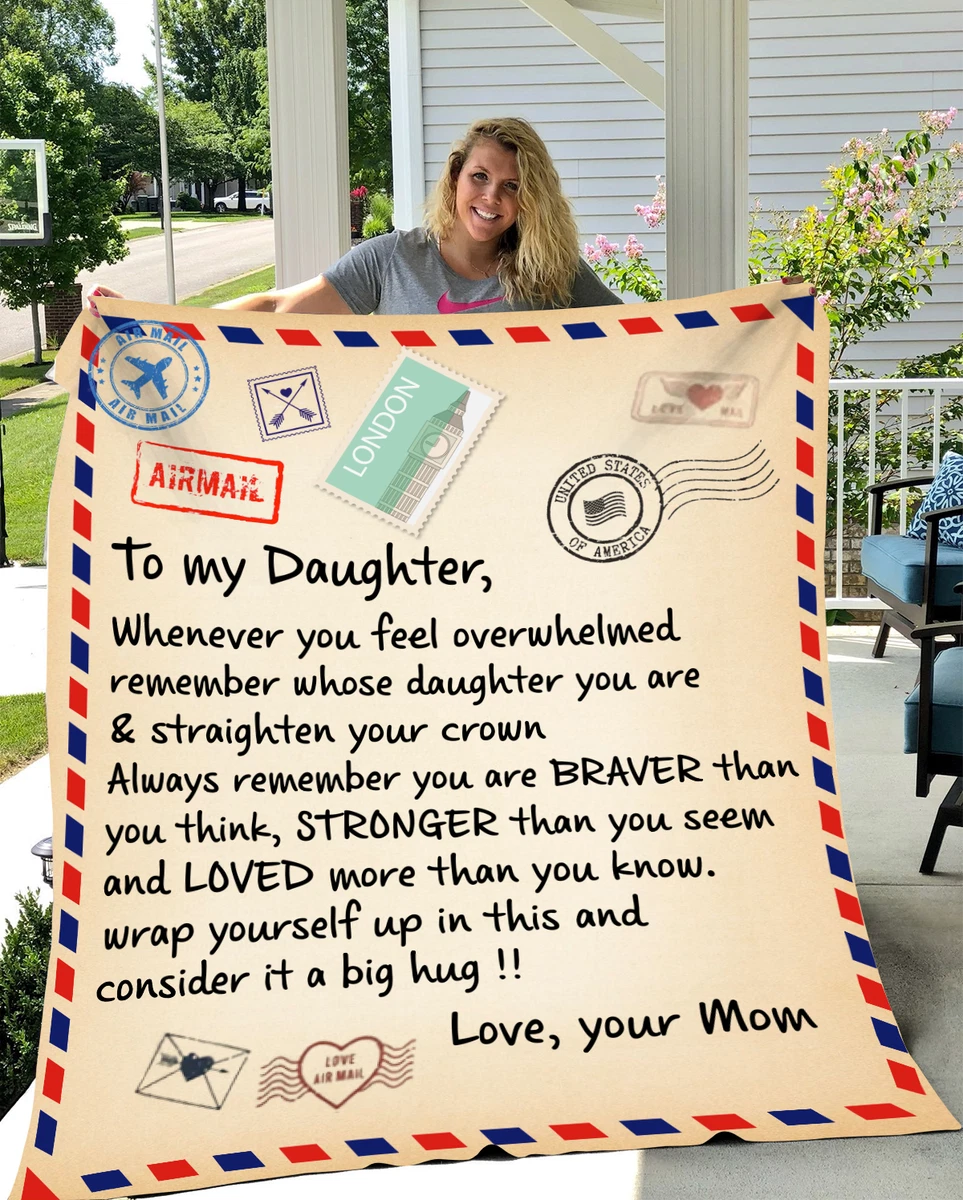 SPALDING
AIR MAIL
AIR MAIL
AIRMAIL
LONDON
LOVE MAIL
UNITED STATES
OF AMERICA
To my Daughter,
Whenever you feel overwhelmed
remember whose daughter you are
& straighten your crown
Always remember you are BRAVER than
you think, STRONGER than you seem
and LOVED more than you know.
wrap yourself up in this and
consider it a big hug !!
Love, your Mom
LOVE
AIR MAIL